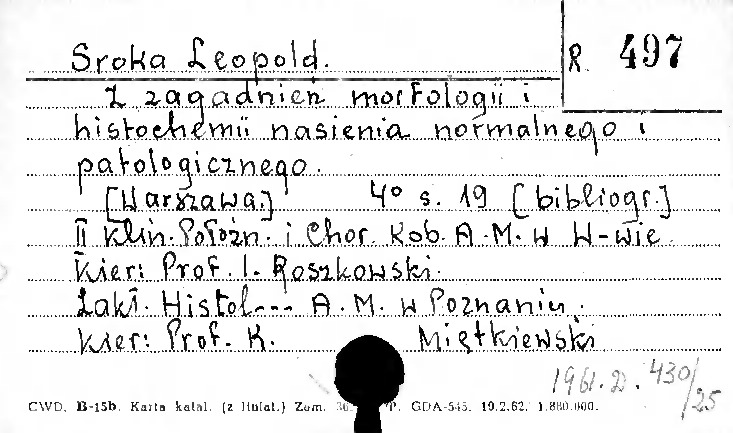 Sroka Leopold.
R. 497
Z zagadnień morfologii i
histochemii nasienia normalnego i
patologicznego.
[Warszawa.] 4° s. 19 [bibliogr.]
II Klin. Położn. i Chor. Kob. A.M. w W-wie.
Kier: Prof. I. Roszkowski.
Zakł. Histol--- A.M. w Poznaniu.
Kier: Prof. K. Miętkiewski
1961. D. 430/25
CWD, B-15b. Karta katal. (z liniat.) Zam. GDA-545. 19.2.62. 1.880.000.